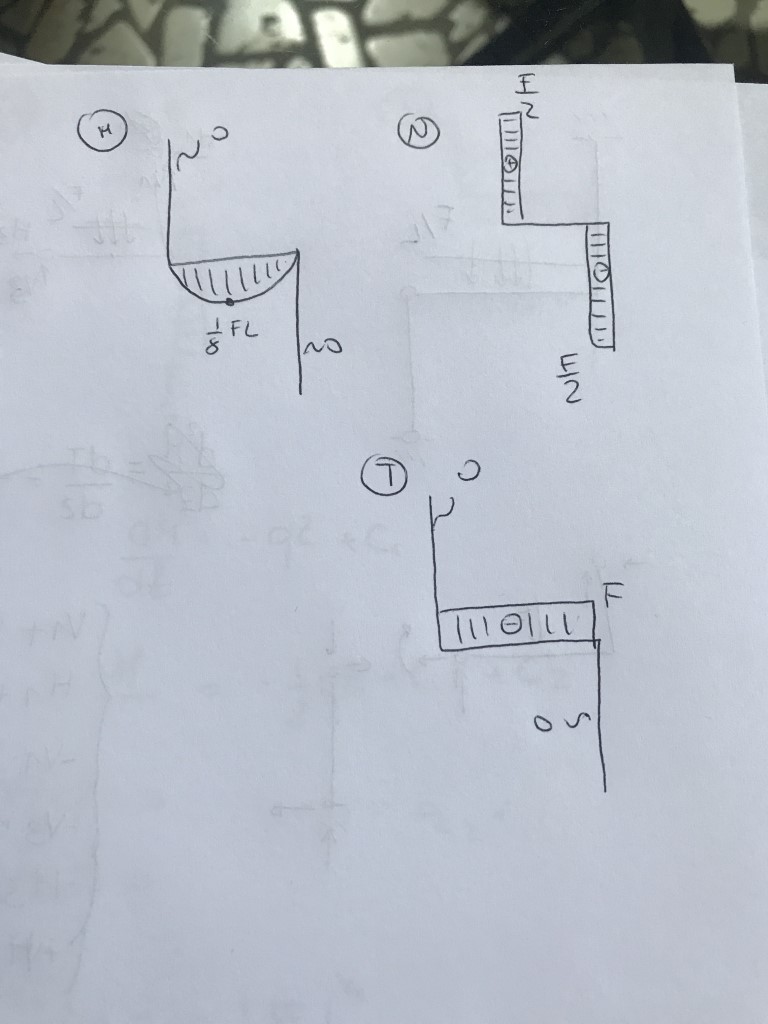 M
0
1/8 FL
0
N
F/2
+
-
F/2
T
0
-
F
0